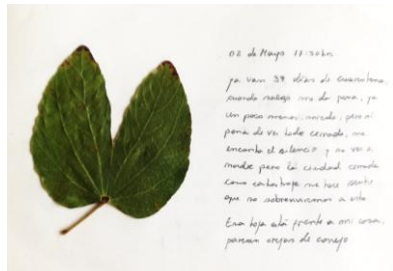 02 de Mayo 17:30hrs
ya van 39 días de cuarentena,
cuando salgo me da pena, ya
un poco menos miedo, pero si
pena de ver todo cerrado, me
encanta el silencio y no ver a
nadie pero la ciudad cerrada
como catástrofe me hace sentir
que no sobreviviremos a esto
Esa hoja está frente a mi casa,
parecen orejas de conejo